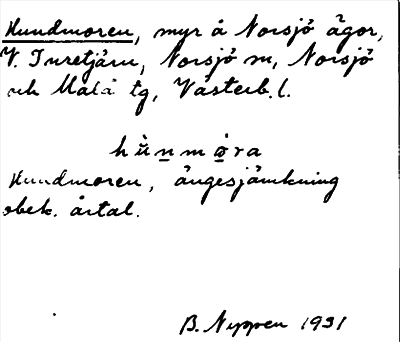 Hundmoren, myr å Norsjö ägor,
V. Turetjärn, Norsjö sn, Norsjö
och Malå tg, Västerb. l.
Hundmoren, ängesjämkning
obek. årtal.
B. Nyppen 1931